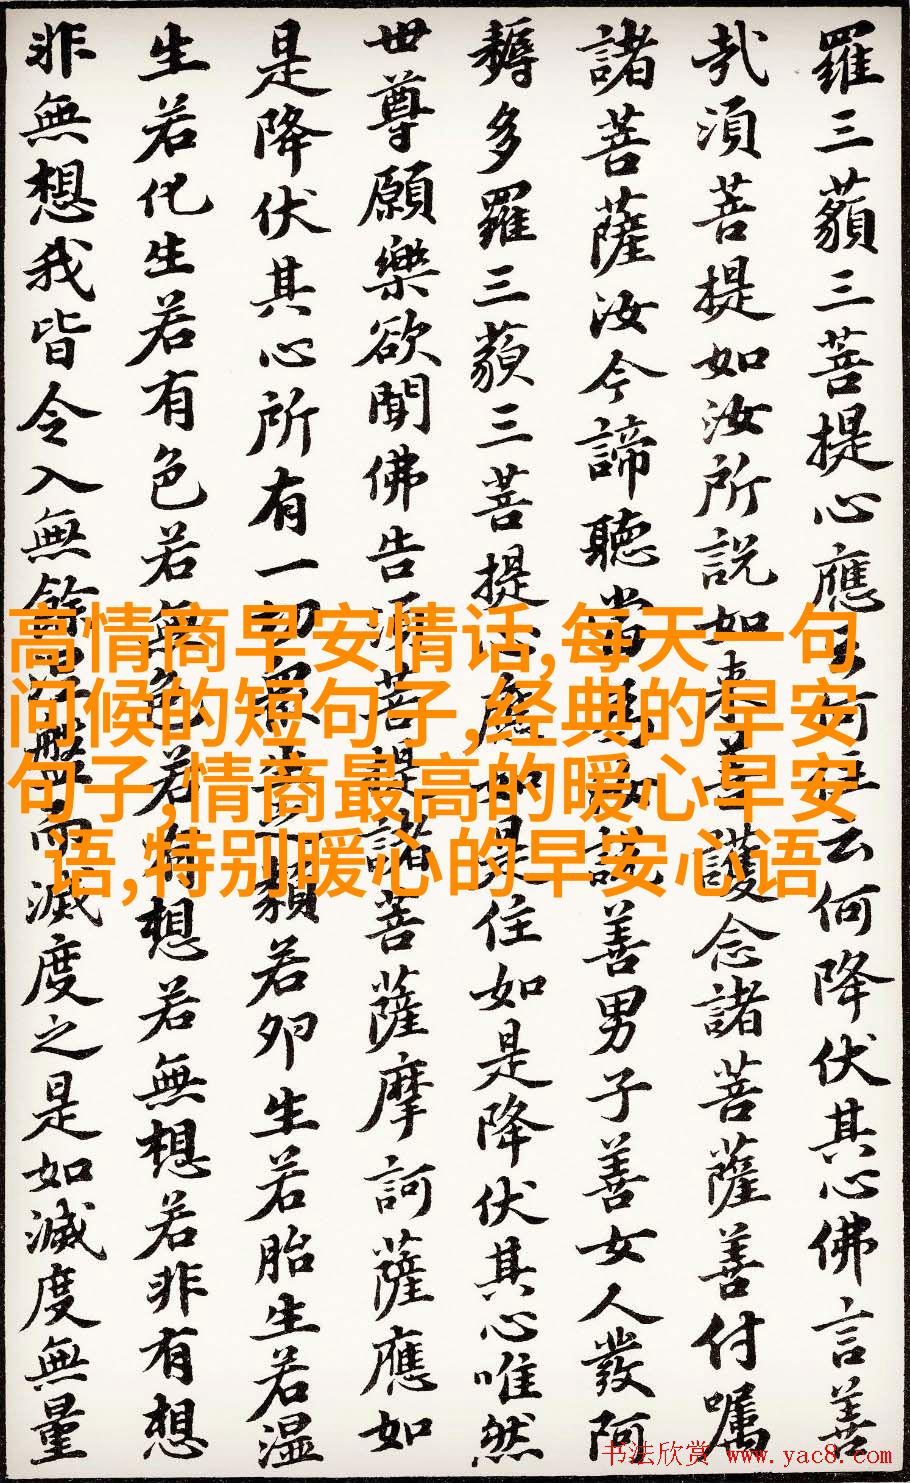 羅三藐三菩提心應云何住云何降伏其心佛言善
哉須菩提如汝所說如來善護念諸菩薩善付囑
諸菩薩汝今諦聽當為汝說善男子善女人發阿
耨多羅三藐三菩提心應如是住如是降伏其心唯然
世尊願樂欲聞佛告須菩提諸菩薩摩訶薩應如
是降伏其心所有一切眾生之類若卵生若胎生若溫
生若化生若有色若無色若有想若無想若非有想
非無想我皆令入無餘涅槃而滅度之是如滅度無量
高情商早安情话,每天一句
问候的短句子,经典的早安
句子,情商最高的暖心早安
语,特别暖心的早安心语
书法欣赏 www.yac8.com